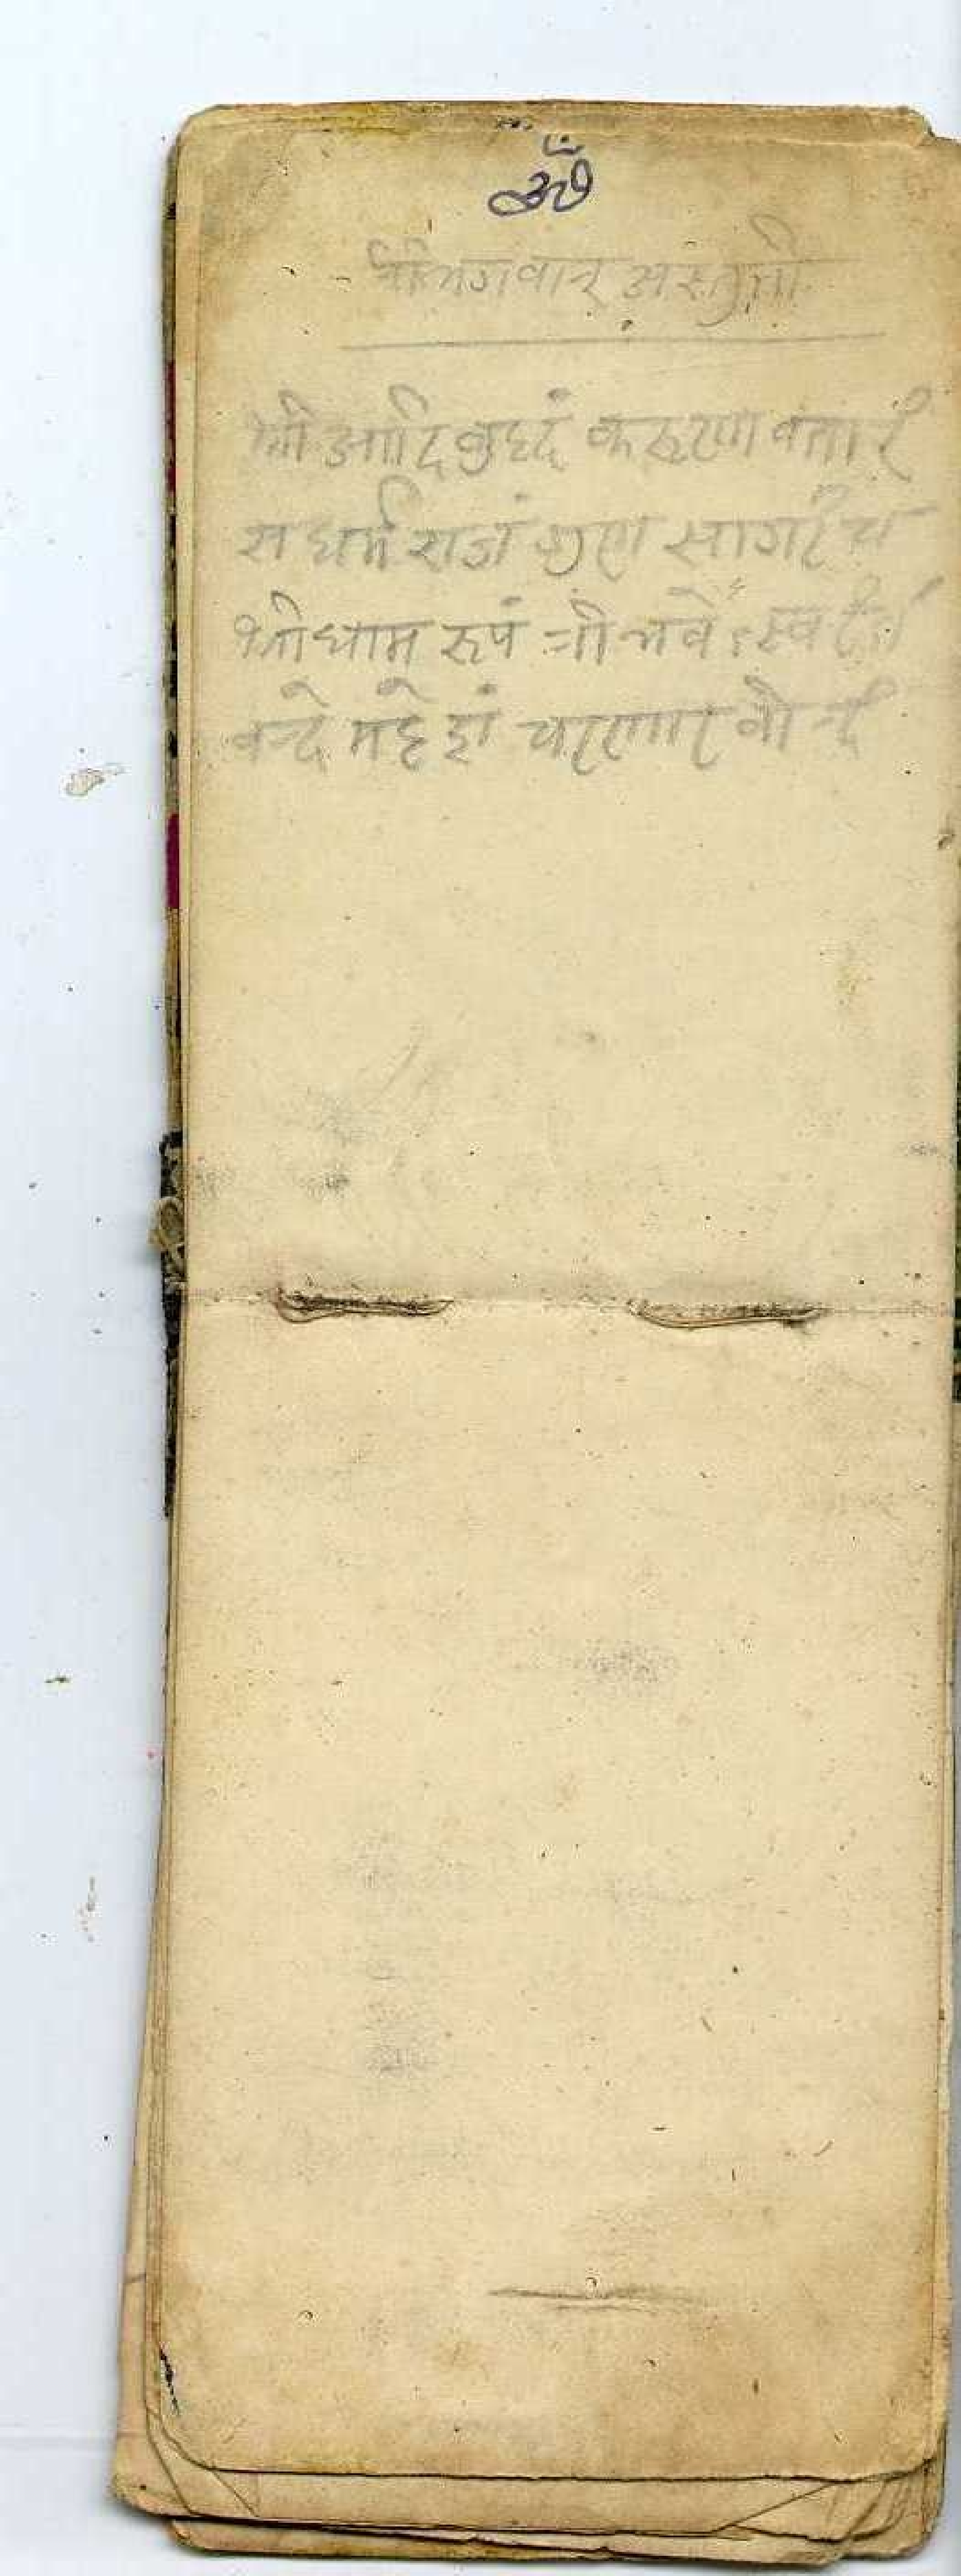 ॐ
श्रीभगवान अस्तुती
श्री आदि बुद्धं करुणा वतारं
स धर्म राजं गुण सागरं च
श्री धाम रुपं त्री भवे
वन्दे महेशं चरणार वीन्दं